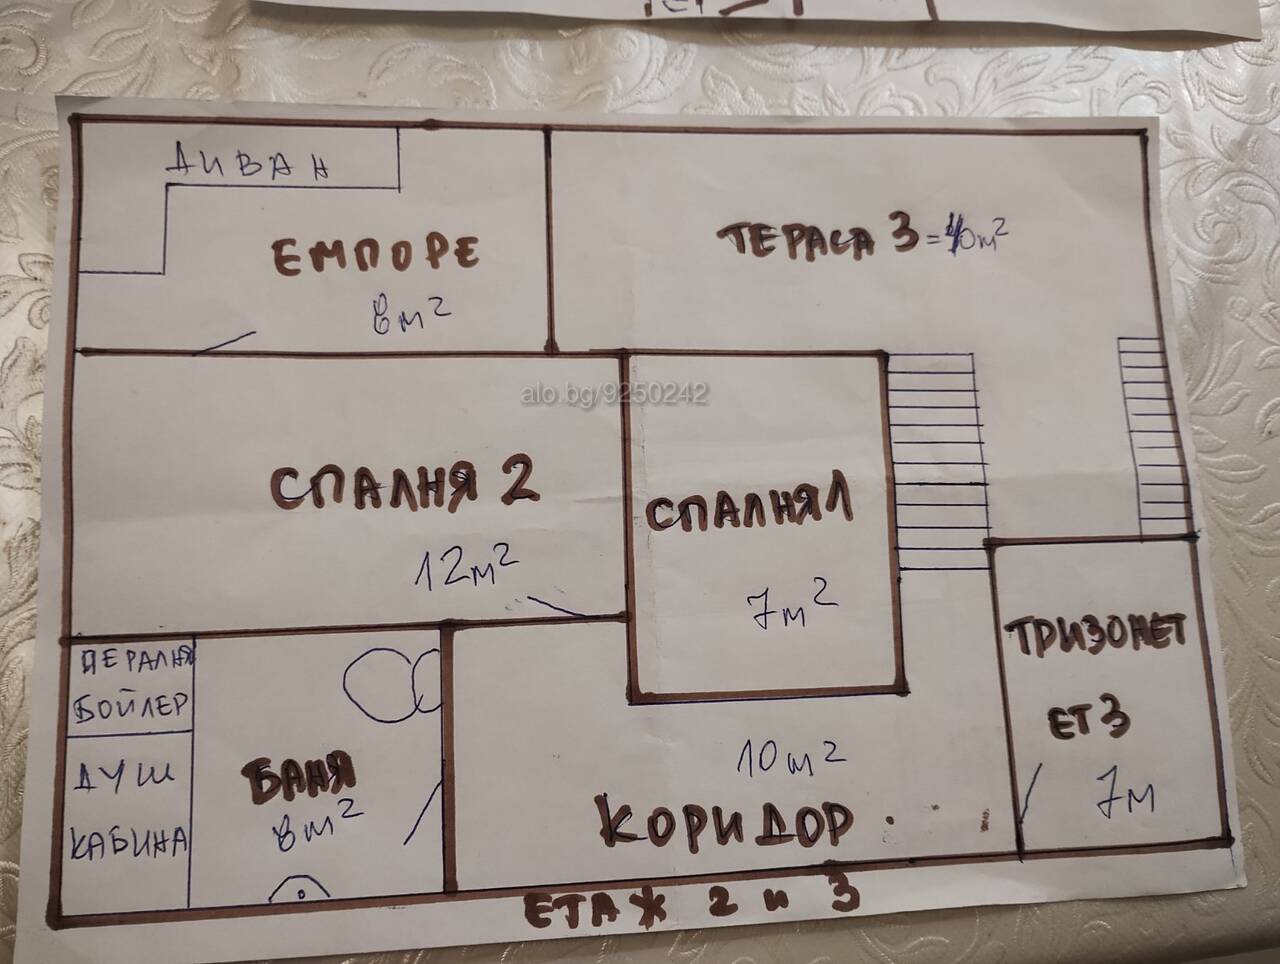 ДИВАН
ЕМПОРЕ
8м²
ТЕРАСА 3 = 40м²
alo.bg/9250242
СПАЛНЯ 2
12м²
СПАЛНЯ 1
7м²
ТРИЗОНЕТ
ЕТ 3
7м
ПЕРАЛНЯ
БОЙЛЕР
ДУШ
КАБИНА
БАНЯ
8м²
10м²
КОРИДОР
ЕТАЖ 2 и 3